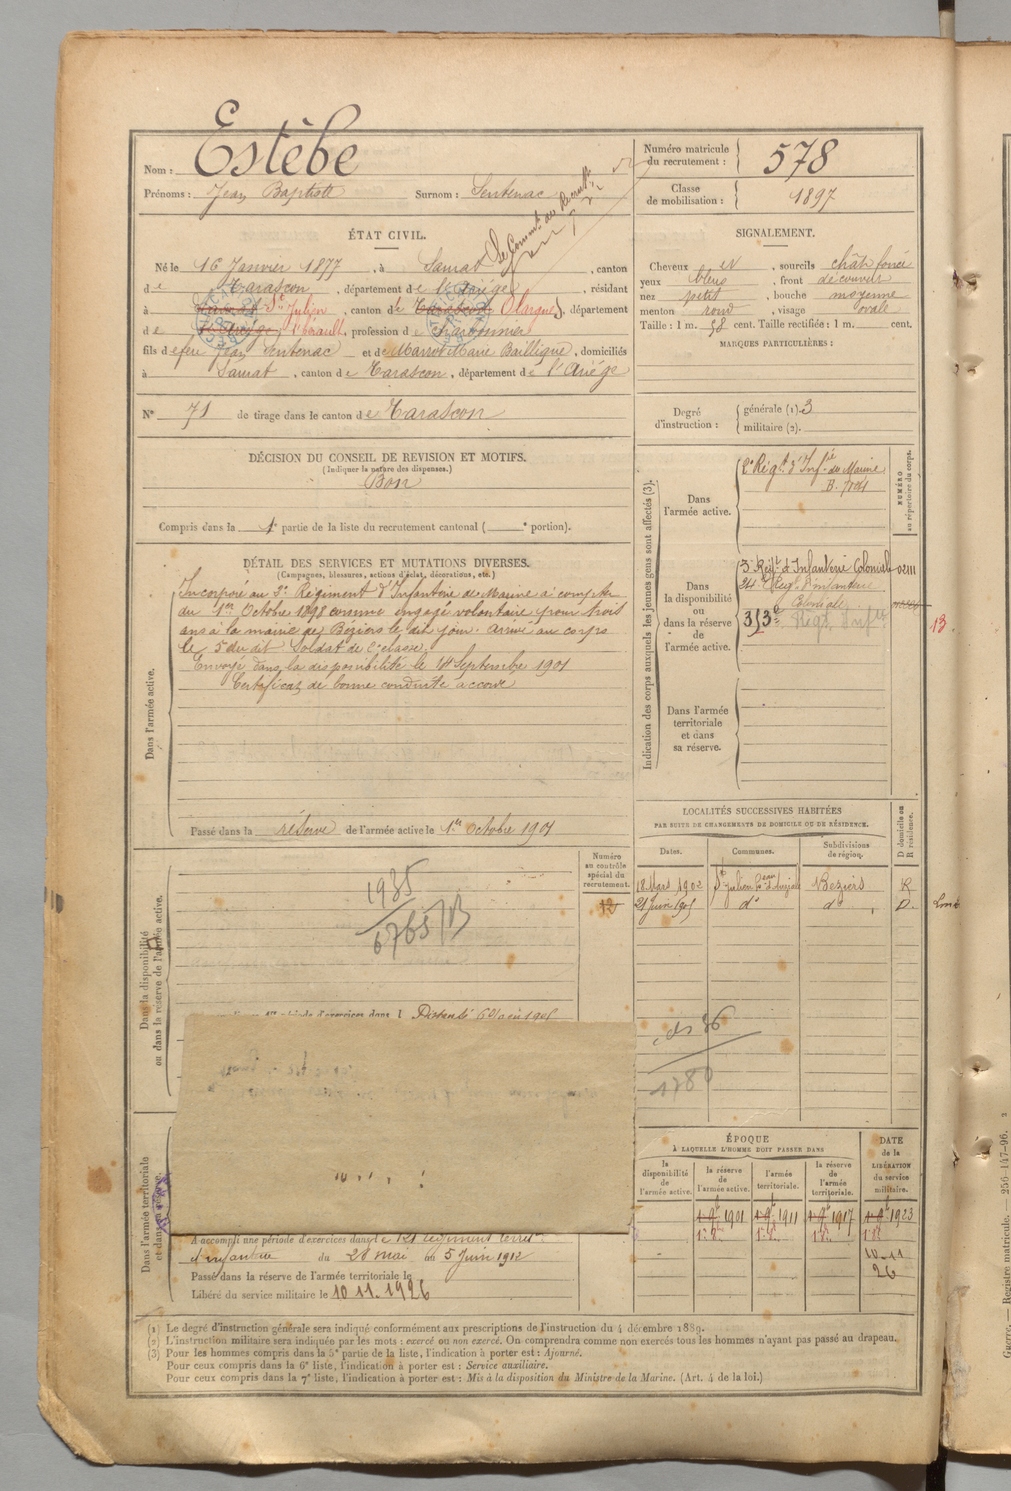 Nom : Estèbe
Prénoms : Jean Baptiste Surnom : Sentenac
Numéro matricule du recrutement : 578
Classe de mobilisation : 1897
ÉTAT CIVIL.
Né le 16 Janvier 1877, à Saurat, canton
de Tarascon, département de l'Ariège, résidant
à Saurat St Julien, canton de Tarascon Olargues, département
de l'Ariège l'hérault, profession de
fils de feu Jean Sentenac et de Marrot Marie, domiciliés
à Saurat, canton de Tarascon, département de l'Ariège
N° 71 de tirage dans le canton de Tarascon
SIGNALEMENT.
Cheveux et, sourcils chât. foncé
yeux bleus, front découvert
nez petit, bouche moyenne
menton rond, visage ovale
Taille : 1 m. 58 cent. Taille rectifiée : 1 m. cent.
MARQUES PARTICULIÈRES :
Degré d'instruction : générale (1). 3
militaire (2).
DÉCISION DU CONSEIL DE REVISION ET MOTIFS.
(Indiquer la nature des dispenses.)
Bon
Compris dans la 1e partie de la liste du recrutement cantonal ( e portion).
DÉTAIL DES SERVICES ET MUTATIONS DIVERSES.
(Campagnes, blessures, actions d'éclat, décorations, etc.)
Dans l'armée active.
Incorporé au 2e Régiment d'Infanterie de Marine à compter
du 1er Octobre 1898 comme engagé volontaire pour trois
ans à la mairie de Béziers le dit jour. Arrivé au corps
le 5 du dit. Soldat de 2e classe.
Envoyé dans la disponibilité le 18 Septembre 1901
Certificat de bonne conduite accordé
Passé dans la réserve de l'armée active le 1er Octobre 1901
Indication des corps auxquels les jeunes gens sont affectés (3).
NUMÉRO au répertoire du corps.
Dans l'armée active.
2e Régt d'Infie de Marine
Dans la disponibilité ou dans la réserve de l'armée active.
3e Régt d'Infanterie Coloniale 02111
24e Régt d'Infanterie
Coloniale
353e Régt Infie
13.
Dans l'armée territoriale et dans sa réserve.
LOCALITÉS SUCCESSIVES HABITÉES
PAR SUITE DE CHANGEMENTS DE DOMICILE OU DE RÉSIDENCE.
Dates. Communes. Subdivisions de région. D domicile ou R résidence.
18 Mars 1902 St Julien Béziers R
21 Juin 1905 do do D.
Dans la disponibilité ou dans la réserve de l'armée active.
Numéro au contrôle spécial du recrutement.
12
1935
6765
36
1780
Dans l'armée territoriale et dans sa réserve.
A accompli une période d'exercices dans le 121 régiment territ.
d'infanterie du 28 mai au 5 Juin 1912
Passé dans la réserve de l'armée territoriale le
Libéré du service militaire le 10.11.1926
ÉPOQUE
À LAQUELLE L'HOMME DOIT PASSER DANS
la disponibilité de l'armée active. la réserve de l'armée active. l'armée territoriale. la réserve de l'armée territoriale.
DATE de la LIBÉRATION du service militaire.
1901 1911 1917 1923
10-11
26
(1) Le degré d'instruction générale sera indiqué conformément aux prescriptions de l'instruction du 4 décembre 1889.
(2) L'instruction militaire sera indiquée par les mots : exercé ou non exercé. On comprendra comme non exercés tous les hommes n'ayant pas passé au drapeau.
(3) Pour les hommes compris dans la 5e partie de la liste, l'indication à porter est : Ajourné.
Pour ceux compris dans la 6e liste, l'indication à porter est : Service auxiliaire.
Pour ceux compris dans la 7e liste, l'indication à porter est : Mis à la disposition du Ministre de la Marine. (Art. 4 de la loi.)
Guerre. — Registre matricule. — 256-147-96.